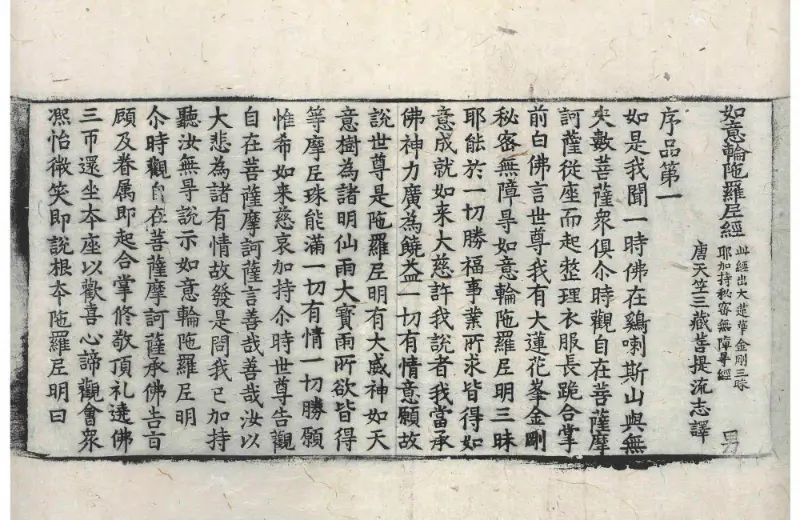 如意輪陁羅尼經
此經出大蓮華金剛三昧
耶加持秘密無障㝵經
唐天竺三藏菩提流志譯 男
序品第一
如是我聞一時佛在鷄喇斯山與無
央數菩薩衆俱尒時觀自在菩薩摩
訶薩從座而起整理衣服長跪合掌
前白佛言世尊我有大蓮花峯金剛
秘密無障㝵如意輪陁羅尼明三昧
耶能於一切勝福事業所求皆得如
意成就如来大慈許我說者我當承
佛神力廣為饒益一切有情意願故
說世尊是陁羅尼明有大威神如天
意樹為諸明仙雨大寶雨所欲皆得
等摩尼珠能滿一切有情一切勝願
惟希如来慈哀加持尒時世尊告觀
自在菩薩摩訶薩言善哉善哉汝以
大悲為諸有情故發是問我已加持
聽汝無㝵說示如意輪陁羅尼明
尒時觀自在菩薩摩訶薩承佛告言
顧及眷属即起合掌修敬頂礼遶佛
三帀還坐夲座以歡喜心諦觀會衆
凞怡微笑即說根夲陁羅尼明曰